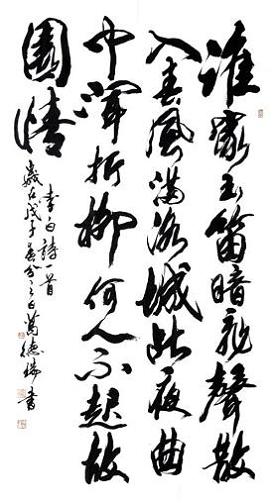 誰家玉笛暗飛聲散
入春風滿洛城此夜曲
中聞折柳何人不起故
園情
李白詩一首
歲在戊子春分之日德書